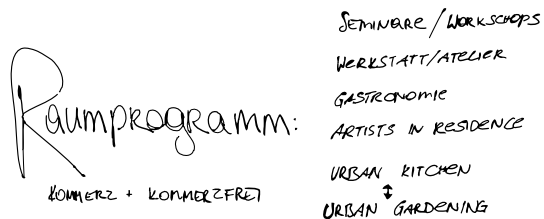 Raumprogramm:
KOMMERZ + KOMMERZFREI
SEMINARE / WORKSHOPS
WERKSTATT/ATELIER
GASTRONOMIE
ARTISTS IN RESIDENCE
URBAN KITCHEN
↕
URBAN GARDENING